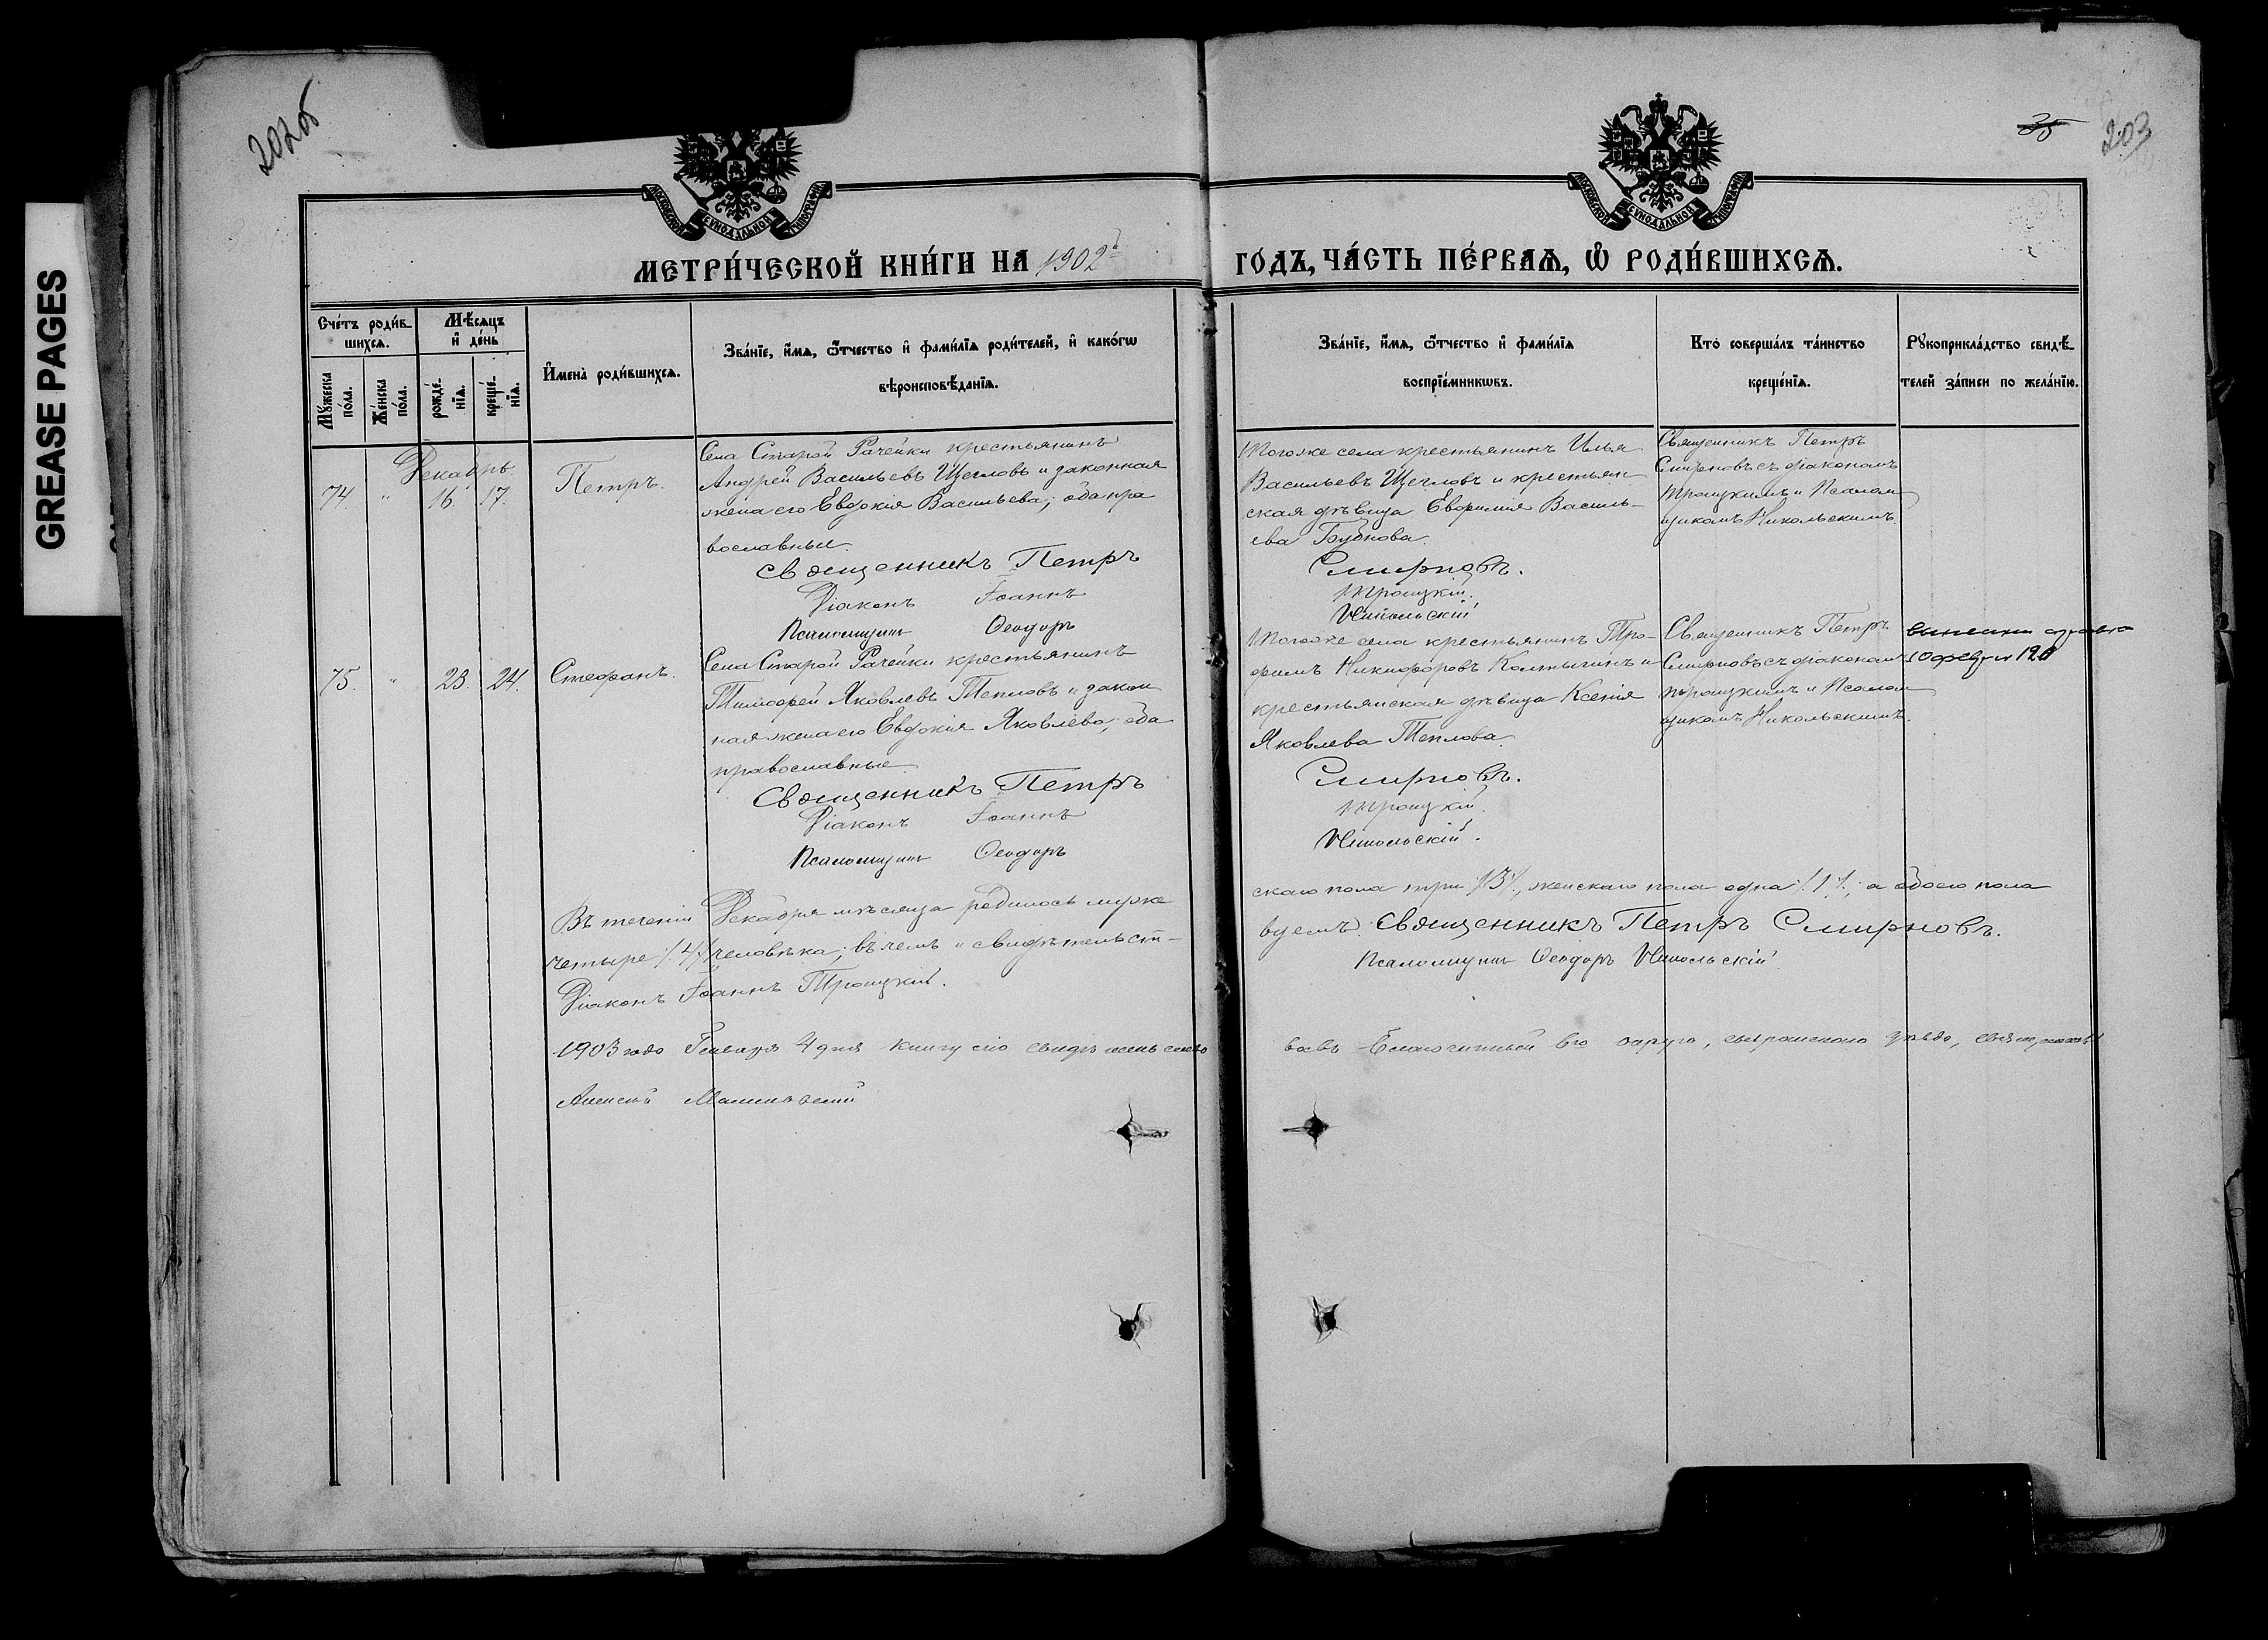 GREASE PAGES
202об
35
203
МОСКОВСКОЙ СѴНОДАЛЬНОЙ ТИПОГРАФІИ
МОСКОВСКОЙ СѴНОДАЛЬНОЙ ТИПОГРАФІИ
МЕТРИ́ЧЕСКОЙ КНИ́ГИ НА 1902й
ГО́ДЪ, ЧА́СТЬ ПЕ́РВАѦ, Ѡ҆ РОДИ́ВШИХСѦ.
Сче́тъ роди́в-
шихсѧ.
Мѣ́сѧцъ
и҆ де́нь
Мꙋ́жеска
по́ла.
Же́нска
по́ла.
рожде́-
нїѧ.
креще́-
нїѧ.
И҆мена̀ роди́вшихсѧ.
Зва́нїе, и҆́мѧ, ѻ҆́тчество и҆ фами́лїѧ роди́телей, и҆ како́гѡ
вѣроисповѣ́данїѧ.
Зва́нїе, и҆́мѧ, ѻ҆́тчество и҆ фами́лїѧ
воспрїе́мникѡвъ.
Кто̀ соверша́лъ та́инство
креще́нїѧ.
Рꙋкоприкла́дство свидѣ́-
телей за́писи по жела́нїю.
Декабрь.
74. " 16. 17. Петръ.
Села Старой Рачейки крестьянинъ
Андрей Васильевъ Щегловъ и законная
жена его Евдокія Васильева; оба пра
вославные.
Священникъ Петръ
Діаконъ Іоаннъ
Псаломщикъ Ѳеодоръ
Тогоже села крестьянинъ Илья
Васильевъ Щегловъ и крестьян
ская дѣвица Евфимія Василь-
ева Бубнова.
Смирновъ.
Троицкій.
Никольскій
Священникъ Петръ
Смирновъ съ діакономъ
Троицкимъ и Псалом
щикомъ Никольскимъ.
75. " 23. 24. Стефанъ.
Села Старой Рачейки крестьянинъ
Тимофей Яковлевъ Тепловъ и закон
ная жена его Евдокія Яковлева; оба
православные.
Священникъ Петръ
Діаконъ Іоаннъ
Псаломщикъ Ѳеодоръ
Тогоже села крестьянинъ Тро-
фимъ Никифоровъ Колтыгинъ и
крестьянская дѣвица Ксенія
Яковлева Теплова.
Смирновъ.
Троицкій.
Никольскій.
Священникъ Петръ
Смирновъ съ діакономъ
Троицкимъ и Псалом
щикомъ Никольскимъ.
справка
10
Въ теченіи Декабря мѣсяца родилось муже
скаго пола три /3/, женскаго пола одна /1/; а обоего пола
четыре /4/ человѣка; въ чемъ и свидѣтельст-
вуемъ. Священникъ Петръ Смирновъ.
Діаконъ Іоаннъ Троицкій.
Псаломщикъ Ѳеодоръ Никольскій
1903 года Января 4 дня книгу сію свидѣтельство
валъ Благочинный 6го округа, сызранскаго уѣзда, священникъ
Алексѣй